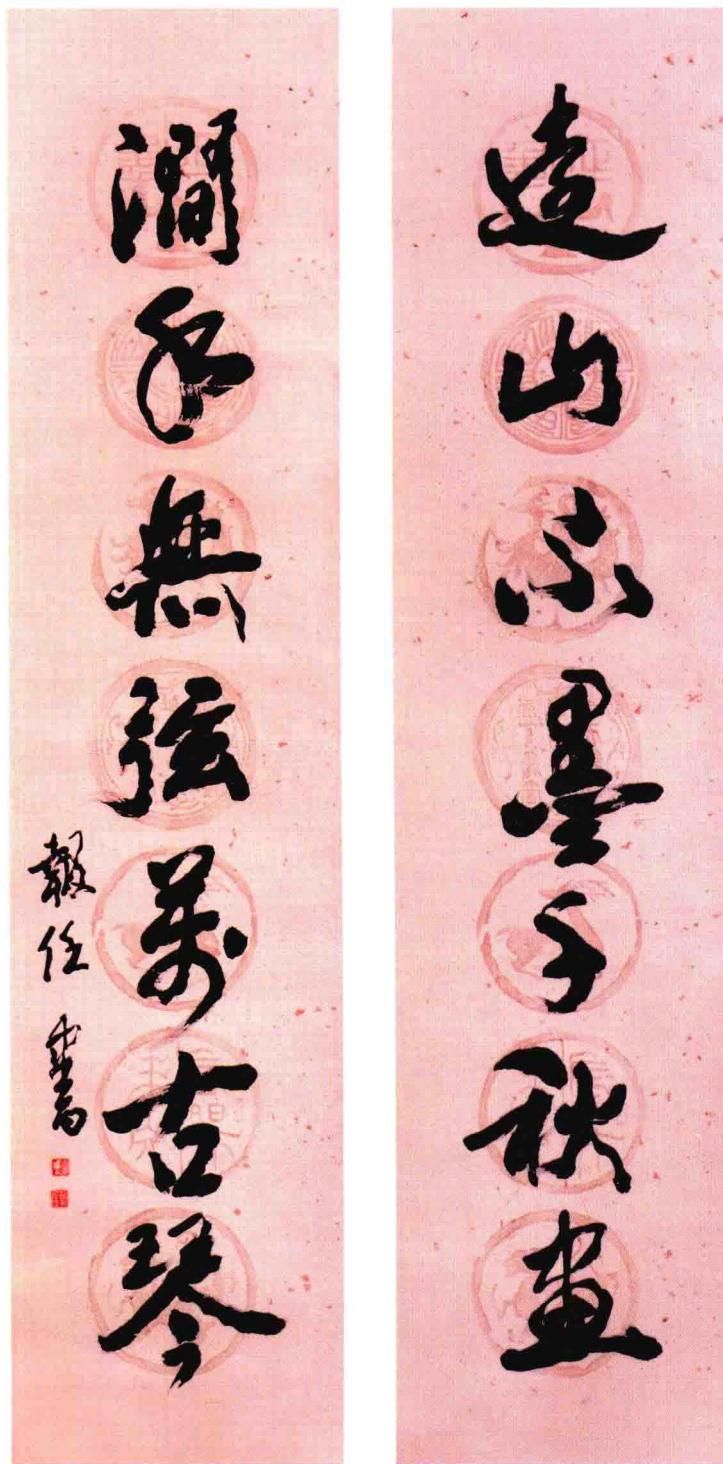 遠山不墨千秋畫
澗水無弦萬古琴